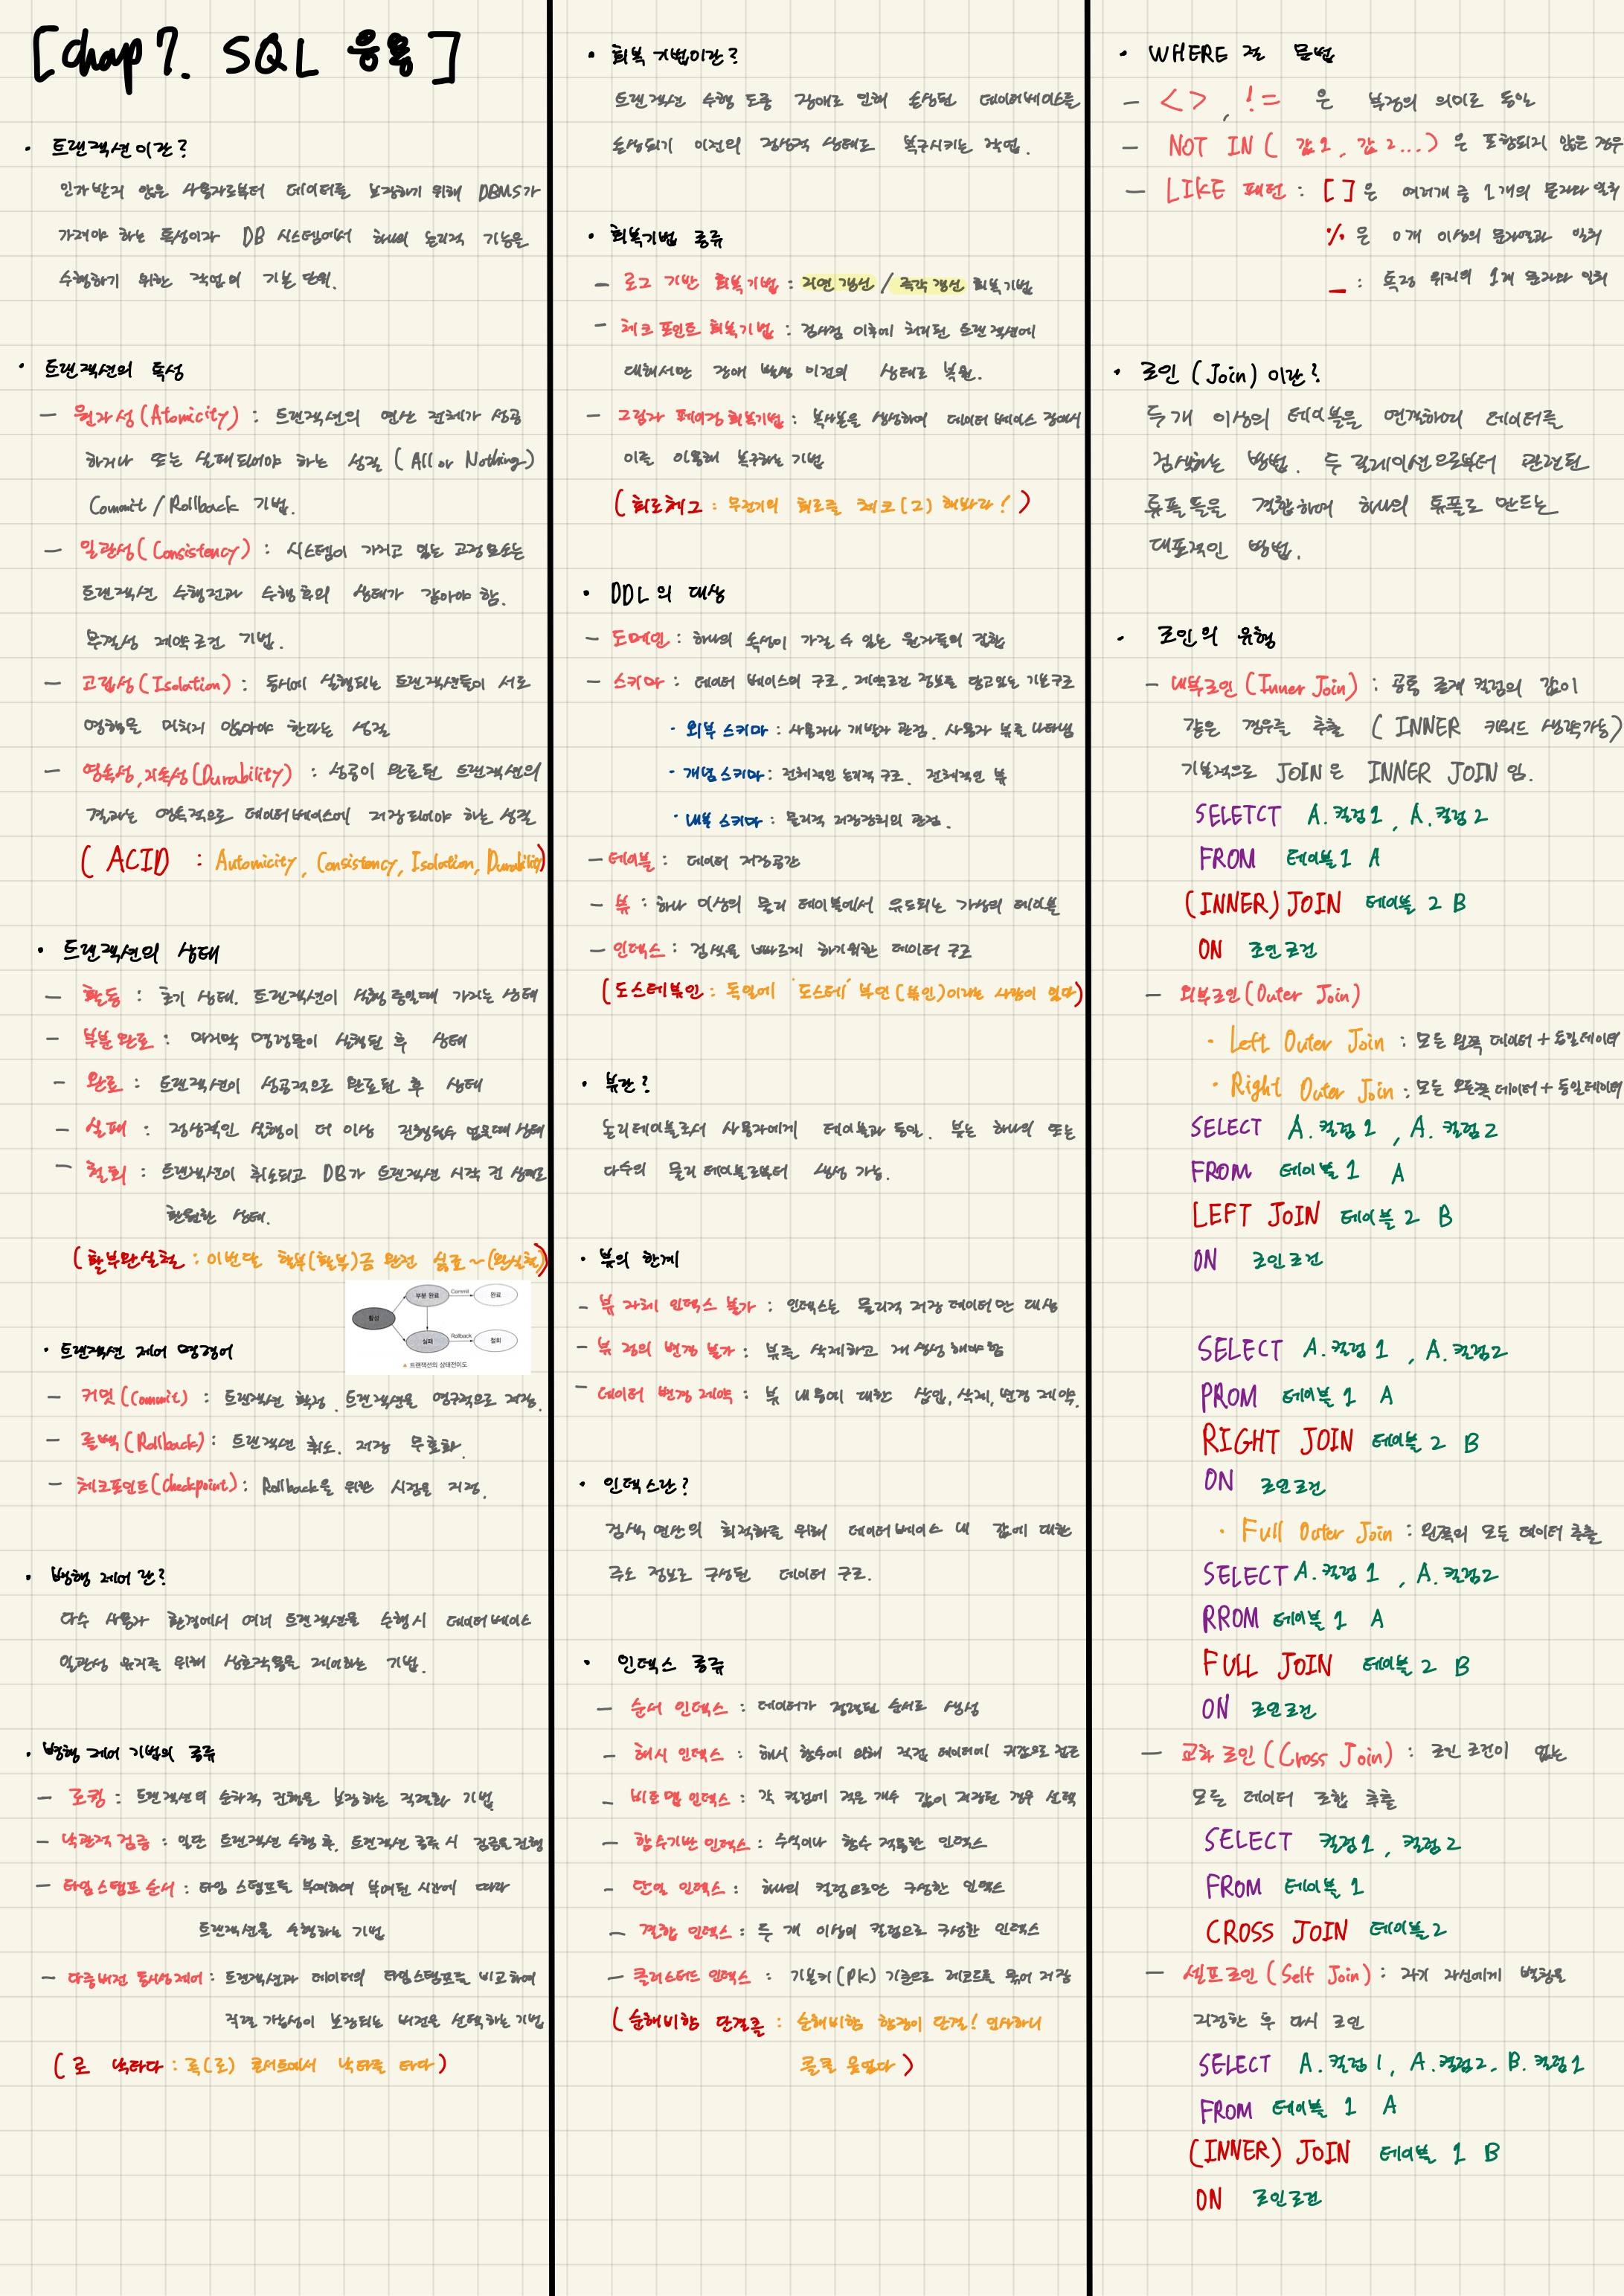 [chap 7. SQL 응용]
· 트랜잭션이란?
인가받지 않은 사용자로부터 데이터를 보장하기 위해 DBMS가
가져야 하는 특성이자 DB 시스템에서 하나의 논리적 기능을
수행하기 위한 작업의 기본 단위.
· 트랜잭션의 특성
- 원자성(Atomicity) : 트랜잭션의 연산 전체가 성공
하거나 또는 실패되어야 하는 성질 (All or Nothing)
Commit/Rollback 기법.
- 일관성(Consistency) : 시스템이 가지고 있는 고정요소는
트랜잭션 수행전과 수행후의 상태가 같아야 함.
무결성 제약조건 기법.
- 고립성(Isolation) : 동시에 실행되는 트랜잭션들이 서로
영향을 미치지 않아야 한다는 성질
- 영속성,지속성(Durability) : 성공이 완료된 트랜잭션의
결과는 영속적으로 데이터베이스에 저장되어야 하는 성질
( ACID : Automicity, Consistency, Isolation, Durability)
· 트랜잭션의 상태
- 활동 : 초기 상태. 트랜잭션이 실행중일때 가지는 상태
- 부분 완료 : 마지막 명령문이 실행된 후 상태
- 완료 : 트랜잭션이 성공적으로 완료된 후 상태
- 실패 : 정상적인 실행이 더 이상 진행될수 없을때 상태
- 철회 : 트랜잭션이 취소되고 DB가 트랜잭션 시작 전 상태로
환원한 상태.
(활부완실철 : 이번달 할부(활부)금 완전 싫죠~(완실철))
활성
부분 완료
Commit
완료
실패
Rollback
철회
▲ 트랜잭션의 상태전이도
· 트랜잭션 제어 명령어
- 커밋(Commit) : 트랜잭션 확정. 트랜잭션을 영구적으로 저장.
- 롤백(Rollback) : 트랜잭션 취소. 저장 무효화.
- 체크포인트(Checkpoint) : Rollback을 위한 시점을 지정.
· 병행 제어란?
다수 사용자 환경에서 여러 트랜잭션을 수행시 데이터베이스
일관성 유지를 위해 상호작용을 제어하는 기법.
· 병행 제어 기법의 종류
- 로킹 : 트랜잭션의 순차적 진행을 보장하는 직렬화 기법
- 낙관적 검증 : 일단 트랜잭션 수행 후, 트랜잭션 종료 시 검증을 진행
- 타임 스탬프 순서 : 타임 스탬프를 부여하여 부여된 시간에 따라
트랜잭션을 수행하는 기법
- 다중버전 동시성제어 : 트랜잭션과 데이터의 타임스탬프를 비교하여
직렬 가능성이 보장되는 버전을 선택하는 기법
(로 낙타다 : 록(로) 콘서트에서 낙타를 타다)
· 회복 기법이란?
트랜잭션 수행 도중 장애로 인해 손상된 데이터베이스를
손상되기 이전의 정상적 상태로 복구시키는 작업.
· 회복기법 종류
- 로그 기반 회복기법 : 지연갱신 / 즉각갱신 회복기법
- 체크 포인트 회복기법 : 검사점 이후에 처리된 트랜잭션에
대해서만 장애 발생 이전의 상태로 복원.
- 그림자 페이징 회복기법 : 복사본을 생성하여 데이터베이스 장애시
이를 이용해 복구하는 기법
(회로체그 : 무전기의 회로를 체크(그) 해봐라!)
· DDL의 대상
- 도메인 : 하나의 속성이 가질 수 있는 원자들의 집합
- 스키마 : 데이터 베이스의 구조, 제약조건 정보를 담고있는 기본구조
· 외부 스키마 : 사용자나 개발자 관점. 사용자 뷰를 나타냄
· 개념 스키마 : 전체적인 논리적 구조. 전체적인 뷰
· 내부 스키마 : 물리적 저장장치의 관점.
- 테이블 : 데이터 저장공간
- 뷰 : 하나 이상의 물리 테이블에서 유도되는 가상의 테이블
- 인덱스 : 검색을 빠르게 하기위한 데이터 구조
(도스테뷰인 : 독일에 '도스테' 부인(뷰인)이라는 사람이 있다)
· 뷰란?
논리테이블로서 사용자에게 테이블과 동일. 뷰는 하나의 또는
다수의 물리 테이블로부터 생성 가능.
· 뷰의 한계
- 뷰 자체 인덱스 불가 : 인덱스는 물리적 저장 데이터만 대상
- 뷰 정의 변경 불가 : 뷰를 삭제하고 재생성해야함
- 데이터 변경 제약 : 뷰 내용에 대한 삽입, 삭제, 변경 제약.
· 인덱스란?
검색 연산의 최적화를 위해 데이터베이스 내 값에 대한
주소 정보로 구성된 데이터 구조.
· 인덱스 종류
- 순서 인덱스 : 데이터가 정렬된 순서로 생성
- 해시 인덱스 : 해시 함수에 의해 직접 데이터에 키값으로 접근
- 비트맵 인덱스 : 각 컬럼에 적은 개수 값이 저장된 경우 선택
- 함수기반 인덱스 : 수식이나 함수 적용한 인덱스
- 단일 인덱스 : 하나의 컬럼으로만 구성한 인덱스
- 결합 인덱스 : 두 개 이상의 컬럼으로 구성한 인덱스
- 클러스터드 인덱스 : 기본키(PK) 기준으로 레코드를 묶어 저장
(순해비함 단결클 : 순해비함 함장이 단결! 인사하니
콜콜 웃었다)
· WHERE 절 문법
- <>, != 은 부정의 의미로 동일
- NOT IN ( 값1, 값2...) 은 포함되지 않은 경우
- LIKE 패턴 : [ ]은 여러개 중 1개의 문자와 일치
%은 0개 이상의 문자열과 일치
_ : 특정 위치의 1개 문자와 일치
· 조인 (Join) 이란?
두개 이상의 테이블을 연결하여 데이터를
검색하는 방법. 두 릴레이션으로부터 관련된
튜플들을 결합하여 하나의 튜플로 만드는
대표적인 방법.
· 조인의 유형
- 내부조인 (Inner Join) : 공통 존재 컬럼의 값이
같은 경우를 추출 ( INNER 키워드 생략가능)
기본적으로 JOIN은 INNER JOIN 임.
SELETCT A.컬럼1, A.컬럼2
FROM 테이블1 A
(INNER) JOIN 테이블2 B
ON 조인조건
- 외부조인(Outer Join)
· Left Outer Join : 모든 왼쪽 데이터 + 동일데이터
· Right Outer Join : 모든 오른쪽 데이터 + 동일데이터
SELECT A.컬럼1, A.컬럼2
FROM 테이블1 A
LEFT JOIN 테이블2 B
ON 조인조건
SELECT A.컬럼1, A.컬럼2
PROM 테이블1 A
RIGHT JOIN 테이블2 B
ON 조인조건
· Full Outer Join : 왼쪽의 모든 데이터 추출
SELECT A.컬럼1, A.컬럼2
RROM 테이블1 A
FULL JOIN 테이블2 B
ON 조인조건
- 교차 조인 (Cross Join) : 조인 조건이 없는
모든 데이터 조합 추출
SELECT 컬럼1, 컬럼2
FROM 테이블1
CROSS JOIN 테이블2
- 셀프조인 (Self Join) : 자기 자신에게 별칭을
지정한 후 다시 조인
SELECT A.컬럼1, A.컬럼2, B.컬럼1
FROM 테이블1 A
(INNER) JOIN 테이블1 B
ON 조인조건